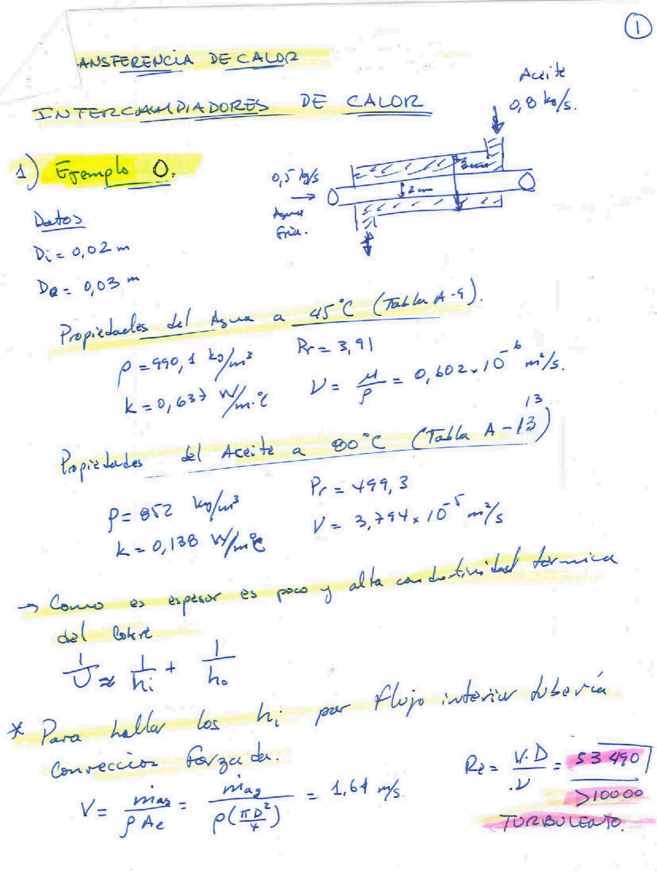 1
ANSFERENCIA DE CALOR
INTERCAMDIADORES DE CALOR
Aceite
0,8 kg/s.
1) Ejemplo 0.
0,5 kg/s
Agua
fria.
2cm
3cm
Datos
Di = 0,02 m
De = 0,03 m
Propiedades del Agua a 45°C (Tabla A-9).
ρ = 990,1 kg/m³ Pr = 3,91
k = 0,637 W/m·°C ν = μ/ρ = 0,602 × 10⁻⁶ m²/s.
Propiedades del Aceite a 80°C (Tabla A-13)
13
ρ = 852 kg/m³ Pr = 499,3
k = 0,138 W/m°C ν = 3,794 × 10⁻⁵ m²/s
→ Como es espesor es poco y alta conductividad térmica
del Cobre
1/U ≈ 1/hi + 1/ho
* Para hallar los hi por flujo interior tubería
Convección forzada.
V = ṁag/(ρ Ac) = ṁag/(ρ(πD²/4)) = 1,61 m/s.
Re = V·D/ν = 53 490
>10000
TURBULENTO.